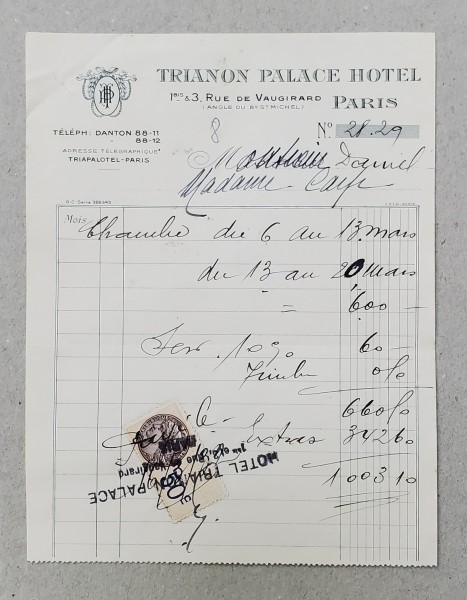 TRIANON PALACE HOTEL
1bis & 3, RUE DE VAUGIRARD
(ANGLE DU BD ST MICHEL)
PARIS
TÉLÉPH: DANTON 88-11
88-12
ADRESSE TÉLÉGRAPHIQUE
TRIAPALOTEL-PARIS
8
No 28.29
Daniel
Madame
R.C. Seine
Mois
Chambre du 6 au 13. mars
du 13 au 20 mars
= 600 —
Ser. 10%
60 —
Timbre
660
Extras 342 60
1003 10
HOTEL TRIANON PALACE
1bis et 3, Rue de Vaugirard
PARIS